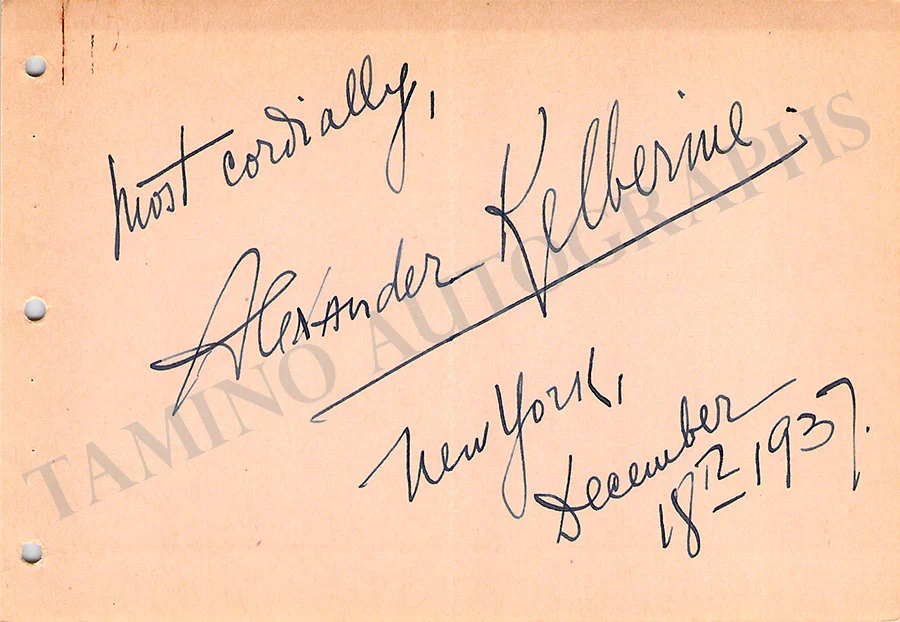 most cordially,
Alexander Kelberine.
New York,
December
18th 1937.
TAMINO AUTOGRAPHS